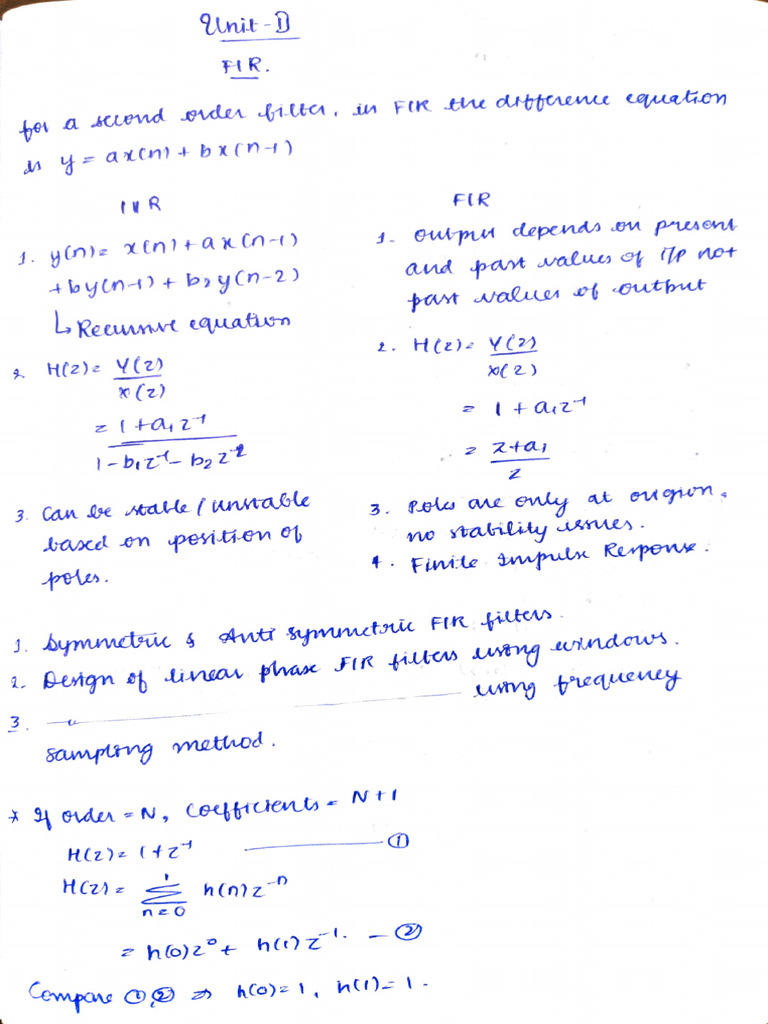 Unit - II
FIR.
for a second order filter, in FIR the difference equation
is y = ax(n) + bx(n-1)
IIR
1. y(n) = x(n) + ax(n-1)
+ by(n-1) + b2y(n-2)
↳ Recursive equation
2. H(z) = Y(z)
x(z)
= 1 + a1z⁻¹
1 - b1z⁻¹ - b2z⁻²
3. Can be stable / unstable
based on position of
poles.
FIR
1. Output depends on present
and past values of i/p not
past values of output
2. H(z) = Y(z)
x(z)
= 1 + a1z⁻¹
= z + a1
z
3. Poles are only at origion,
no stability issues.
4. Finite Impulse Response.
1. Symmetric & Anti symmetric FIR filters.
2. Design of linear phase FIR filters using windows.
3. —〃— using frequency
sampling method.
* If order = N, coefficients = N+1
H(z) = 1 + z⁻¹ — ①
H(z) = Σ h(n) z⁻ⁿ
1
n=0
= h(0)z⁰ + h(1)z⁻¹. — ②
Compare ①,② ⇒ h(0) = 1, h(1) = 1.